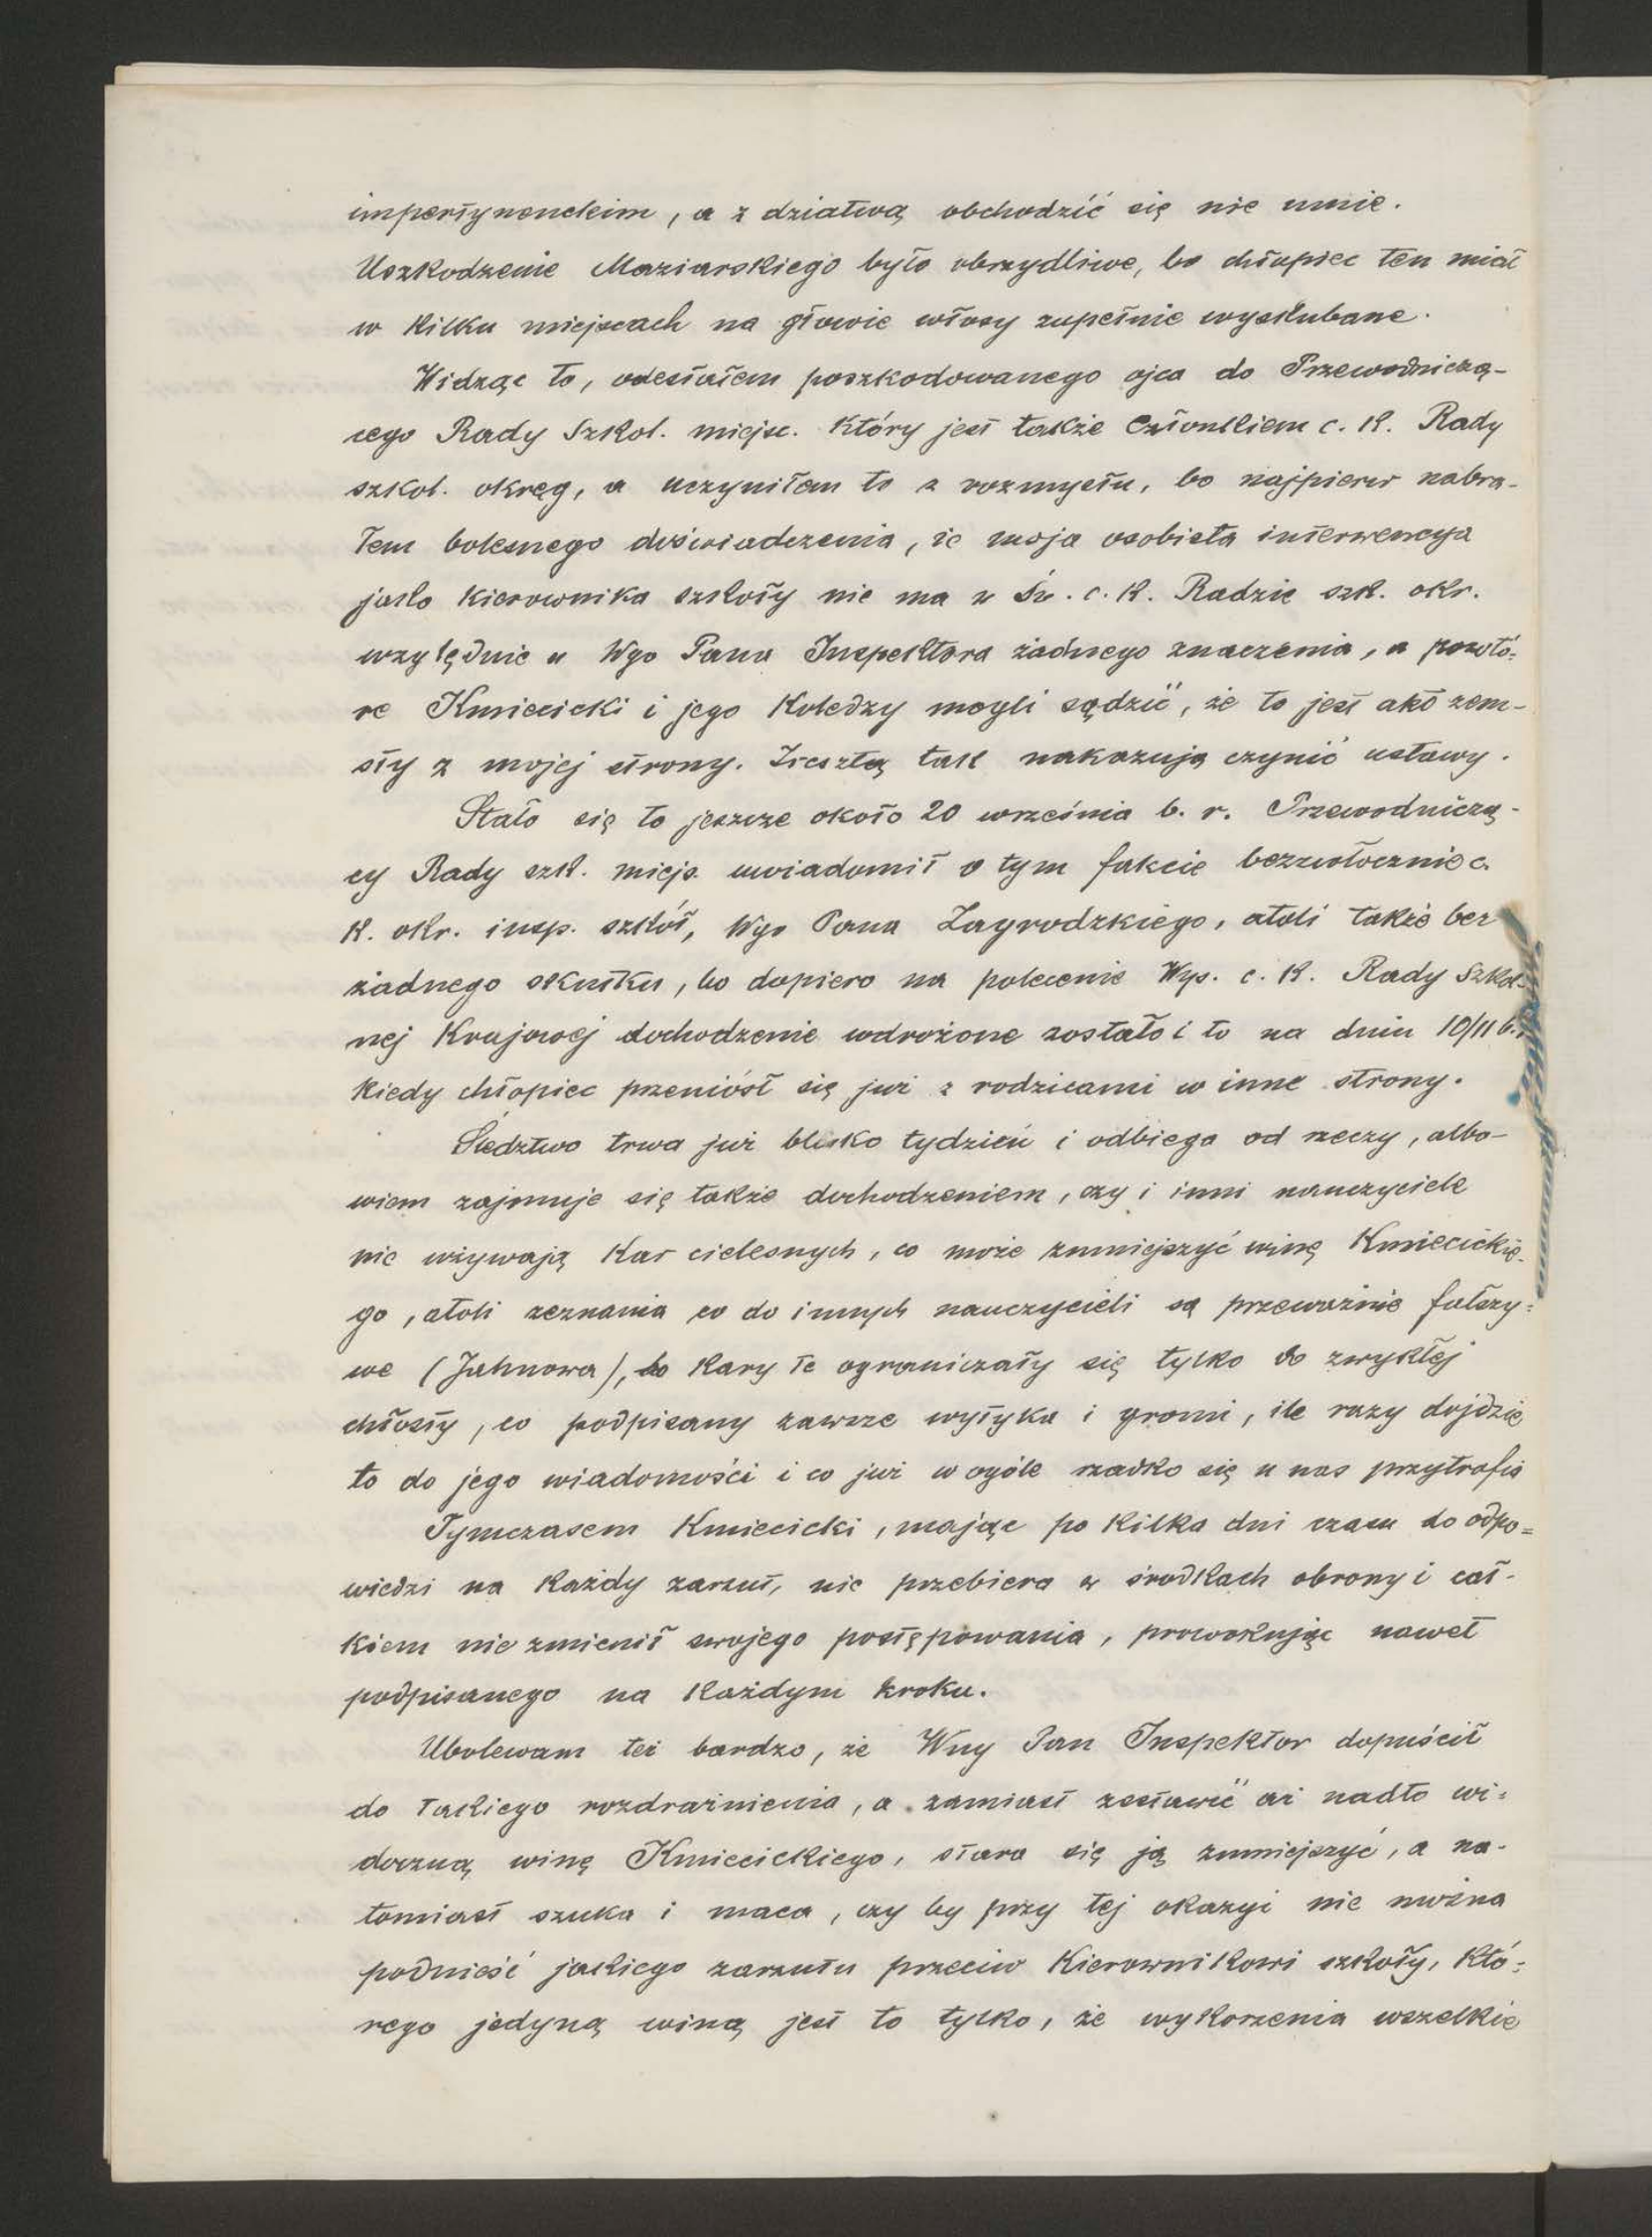 impertynenckim, a z dziatwą obchodzić się nie umie.
Uszkodzenie Maziarskiego było obrzydliwe, bo chłopiec ten miał
w kilku miejscach na głowie włosy zupełnie wyskubane.
Widząc to, odesłałem poszkodowanego ojca do Przewodniczą-
cego Rady Szkol. miejsc. który jest także członkiem c. k. Rady
szkol. okręg, a uczyniłem to z rozmysłu, bo najpierw nabra-
łem bolesnego doświadczenia, że moja osobista interwencya
jako kierownika szkoły nie ma u Św. c. k. Radzie szk. okr.
względnie u Wgo Pana Inspektora żadnego znaczenia, a powtó-
re Kmiecicki i jego koledzy mogli sądzić, że to jest akt zem-
sty z mojej strony. Zresztą tak nakazują czynić ustawy.
Stało się to jeszcze około 20 września b. r. Przewodniczą-
cy Rady szk. miejs. uwiadomił o tym fakcie bezzwłocznie c.
k. okr. insp. szkół, Wgo Pana Zagrodzkiego, atoli także bez
żadnego skutku, bo dopiero na polecenie Wys. c. k. Rady Szkol-
nej Krajowej dochodzenie wdrożone zostało i to na dniu 10/11 b.r.
kiedy chłopiec przeniósł się już z rodzicami w inne strony.
Śledztwo trwa już blisko tydzień i odbiega od rzeczy, albo-
wiem zajmuje się także dochodzeniem, czy i inni nauczyciele
nie używają kar cielesnych, co może zmniejszyć winę Kmiecickie-
go, atoli zeznania co do innych nauczycieli są przeważnie fałszy-
we (Jahnowa), bo kary te ograniczały się tylko do zwykłej
chłosty, co podpisany zawsze wytyka i gromi, ile razy dojdzie
to do jego wiadomości i co już w ogóle rzadko się u nas przytrafia
Tymczasem Kmiecicki, mając po kilka dni czasu do odpo-
wiedzi na każdy zarzut, nie przebiera w środkach obrony i cał-
kiem nie zmienił swojego postępowania, prowokując nawet
podpisanego na każdym kroku.
Ubolewam też bardzo, że Wny Pan Inspektor dopuścił
do takiego rozdrażnienia, a zamiast zestawić aż nadto wi-
doczną winę Kmiecickiego, stara się ją zmniejszyć, a na-
tomiast szuka i maca, czy by przy tej okazyi nie można
podnieść jakiego zarzutu przeciw kierownikowi szkoły, któ-
rego jedyną winą jest to tylko, że wykorzenia wszelkie